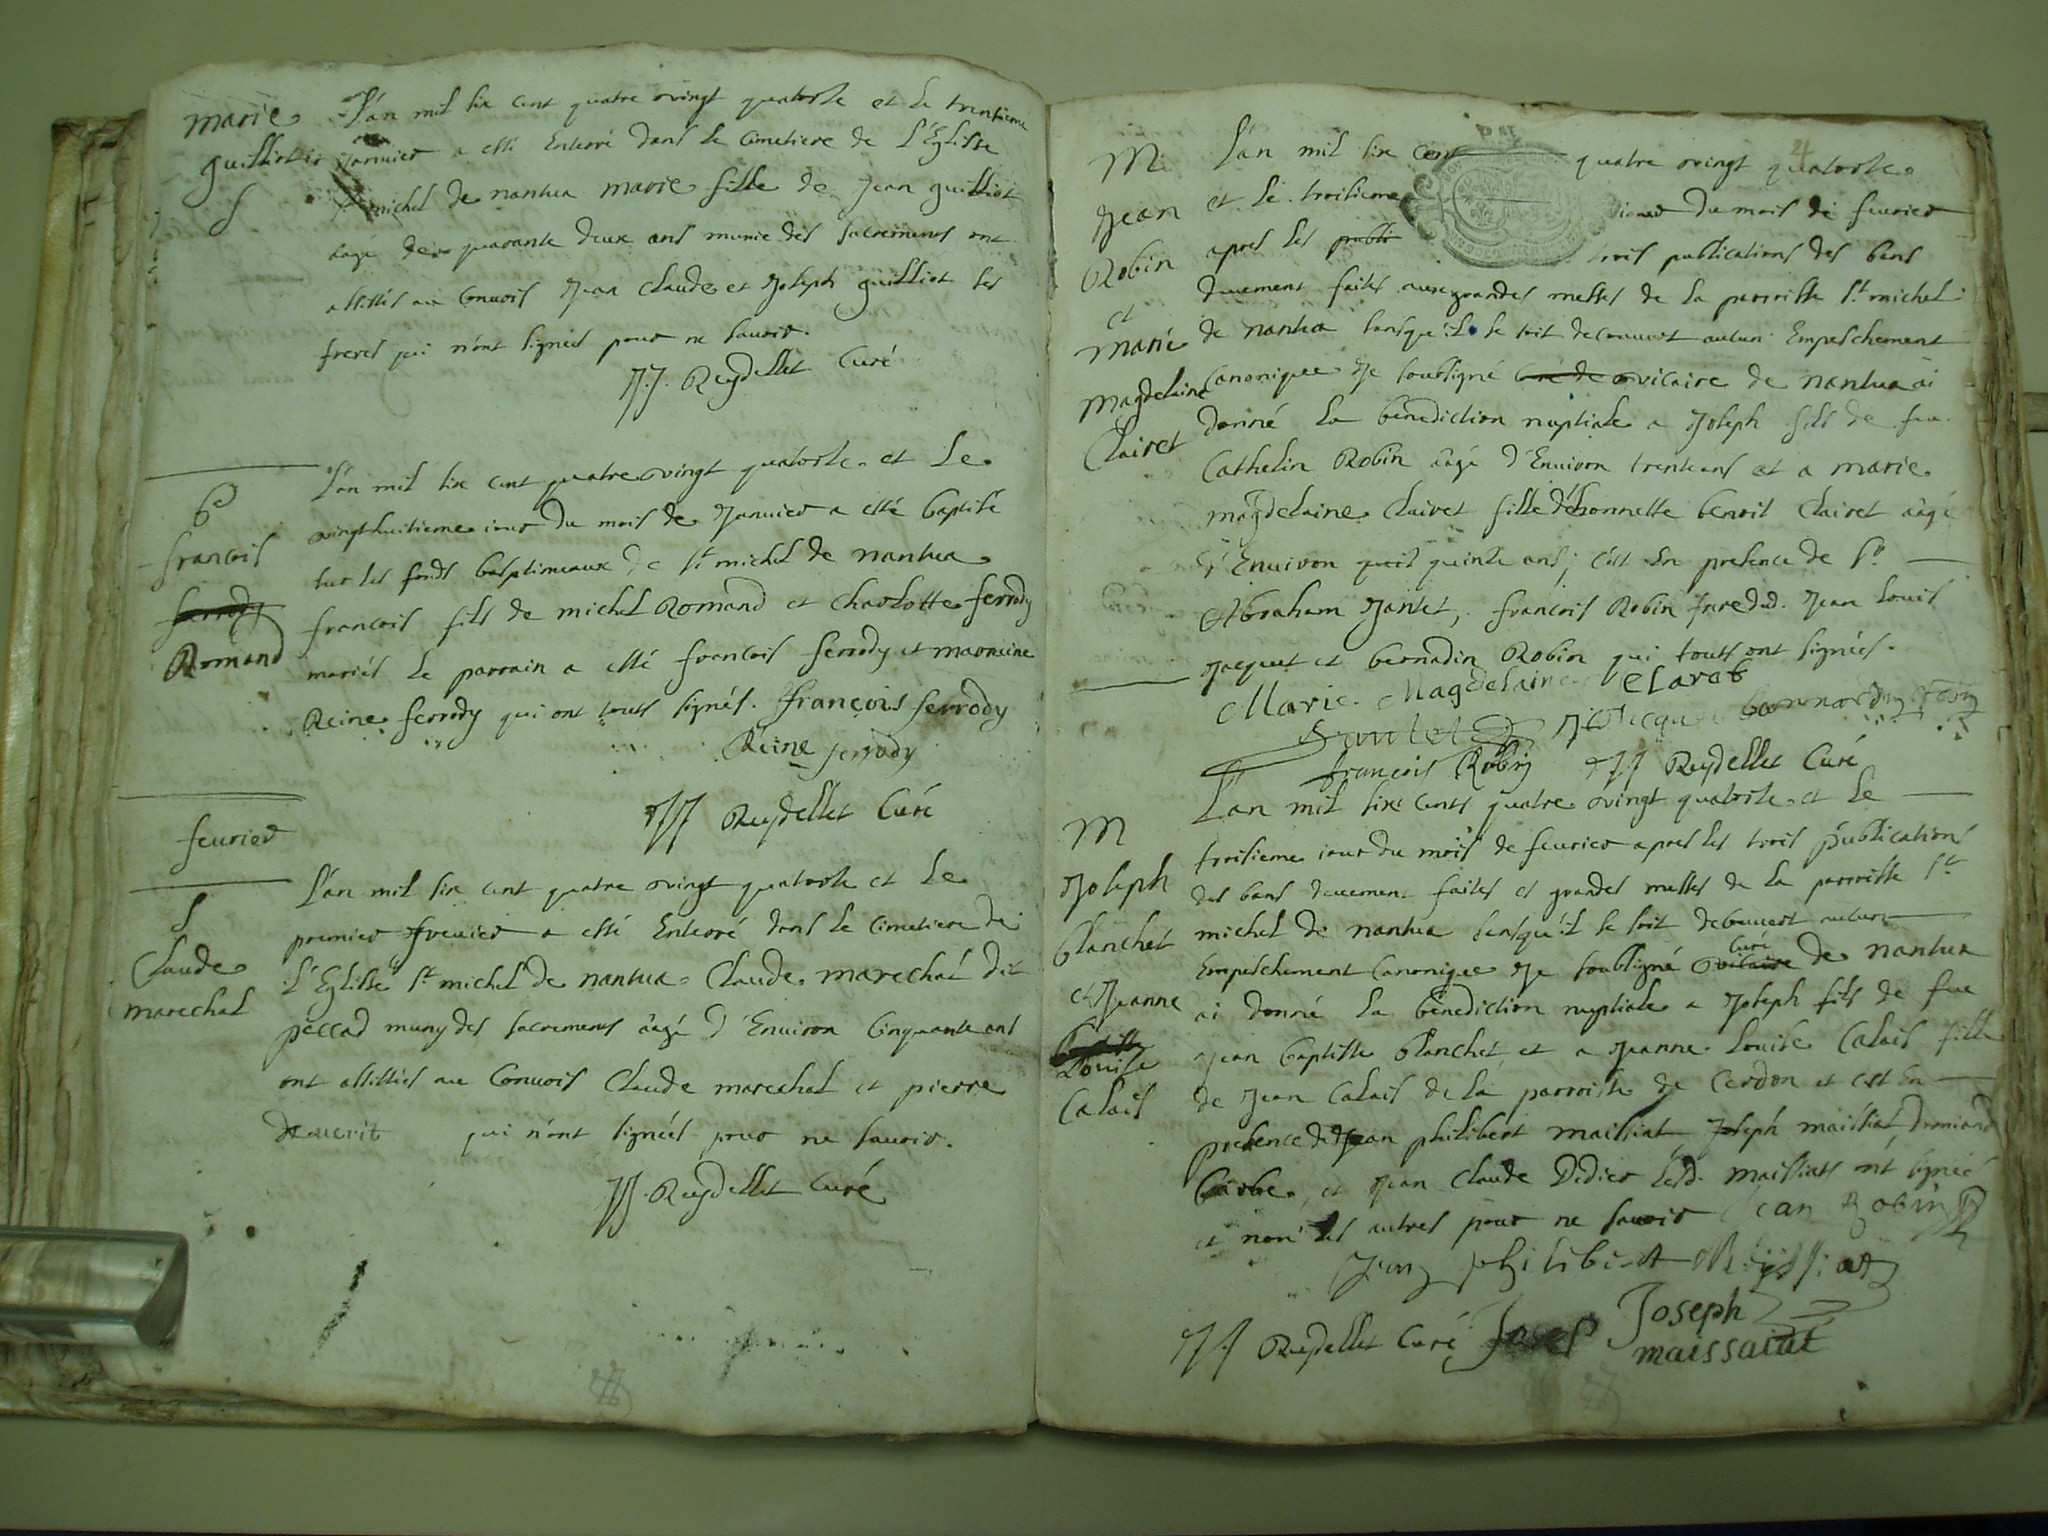 marie
guilliot
S
L'an mil six cent quatre vingt quatorse et le trentieme
Janvier a esté Enterré dans le cimetiere de L'Eglisse
St michel de nantua marie fille de Jean guilliot
aagé de quarante deux ans munie des sacremens ont
assistés au convois Jean claude et Joseph guilliot ses
freres qui n'ont signéés pour ne savoir.
JJ. Reydellet Curé
b
francois
ferrody
Romand
L'an mil six cent quatre vingt quatorse et Le
vingthuitieme iour du mois de Januier a esté baptisé
sur les fonds baptimeaux de St michel de nantua
francois fils de michel Romand et charlotte ferrody
mariés le parrain a esté francois ferrody et marreine
Reine ferrody qui ont touts signés. françois ferrody
Reine ferrody
JJ Reydellet Curé
feurier
S
Claude
marechal
L'an mil six cent quatre vingt quatorse et Le
premier feurier a esté Enterré dans le cimetiere de
L'Eglisse St michel de nantua Claude marechal dit
peccad muny des sacremens aagé d'Enuiron Cinquante ans
ont assistés au Convois Claude marechal et pierre
qui n'ont signéés pour ne savoir.
JJ. Reydellet Curé
4
M
Jean
Robin
et
Marie
Magdelaine
Clairet
L'an mil six cent quatre vingt quatorse
et le troisieme iour du mois de feurier
apres les publi trois publications des bans
duement faites aux grandes messes de la parroisse St michel
de nantua sans qu'il se soit decouuert aucun Empeschement
Canonique Je soubsigné curé de vicaire de nantua ai
donné La bénediction nuptiale a Joseph fils de feu
Cathelin Robin aagé d'Enuiron trente ans et a marie
magdelaine Clairet fille d'honneste benoit Clairet aagé
d'Enuiron quinte ans; c'est En presence de Sr
Abraham Jantet, francois Robin Jean Louis
Jacquet et bernadin Robin qui touts ont signéés.
Marie Magdelaine Claret
Jantet bernardin Robin
francois Robin JJ Reydellet Curé
M
Joseph
blanchet
et Jeanne
Louise
Calais
L'an mil six cents quatre vingt quatorse et Le
troisieme iour du mois de feurier apres les trois publications
des bans duement faites es grandes messes de La parroisse St
michel de nantua sans qu'il se soit decouuert aucun
Empeschement Canonique Je soubsigné vicaire curé de nantua
ai donné La bénediction nuptiale a Joseph fils de feu
Jean baptiste blanchet et a Jeanne Louise Calais fille
de Jean Calais de La parroisse de Cerdon et c'est En
presence de Jean philibert maissiat Joseph maissiat,
barbe, et Jean Claude Didier Lesd. maissiats ont signéé
et non Les autres pour ne savoir Jean Robin
Jean philibert Maissiat
JJ Reydellet Curé Joseph
maissaiat